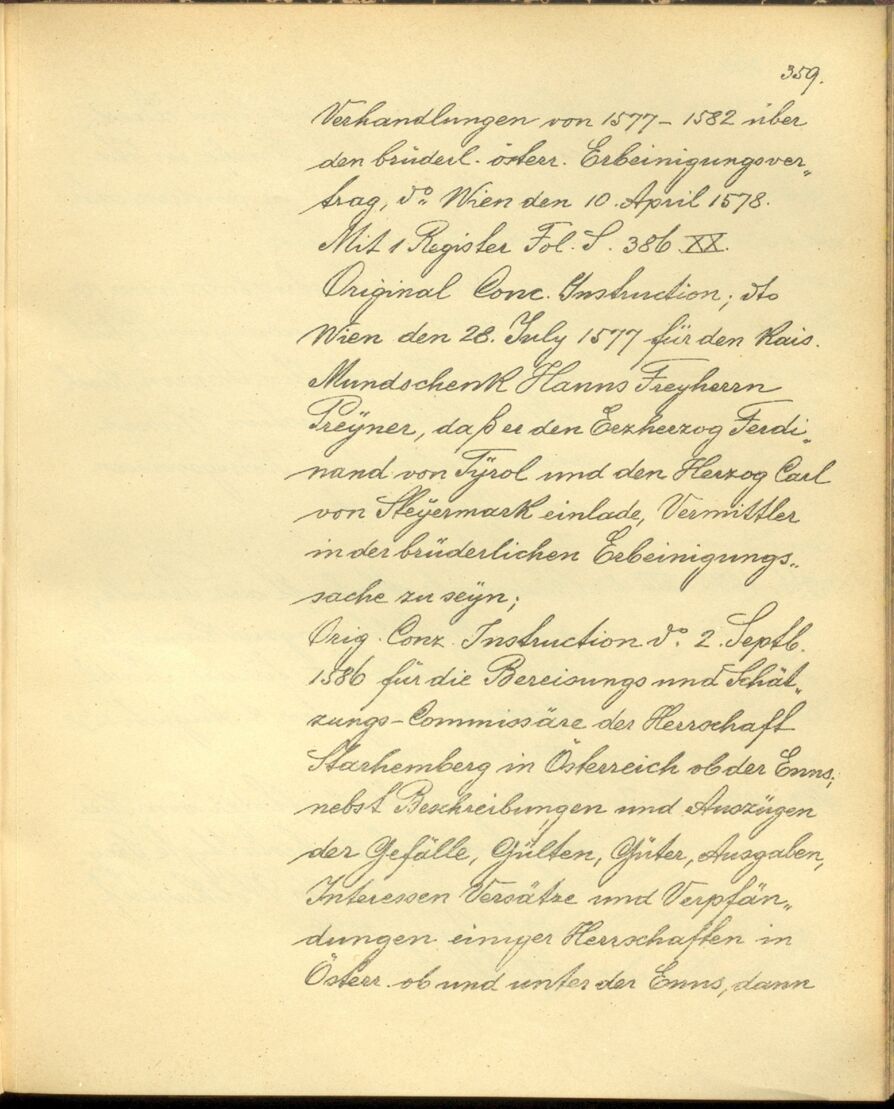 359.
Verhandlungen von 1577 - 1582 über
den brüderl. österr. Erbeinigungsver„
trag, do. Wien den 10. April 1578.
Mit 1 Register Fol. S. 386 XX.
Original Conc. Instruction; dto
Wien den 28. July 1577 für den Kais.
Mundschenk Hanns Freyherrn
Preÿner, daß er den Erzherzog Ferdi„
nand von Tÿrol und den Herzog Carl
von Steÿermark einlade, Vermittler
in der brüderlichen Erbeinigungs„
sache zu seÿn;
Orig. Conz. Instruction do. 2. Septb.
1586 für die Bereisungs und Schät„
zungs-Commissäre der Herrschaft
Starhemberg in Österreich ob der Enns;
nebst Beschreibungen und Auszügen
der Gefälle, Gülten, Güter, Ausgaben,
Interessen Versätze und Verpfän„
dungen einiger Herrschaften in
Österr. ob und unter der Enns, dann